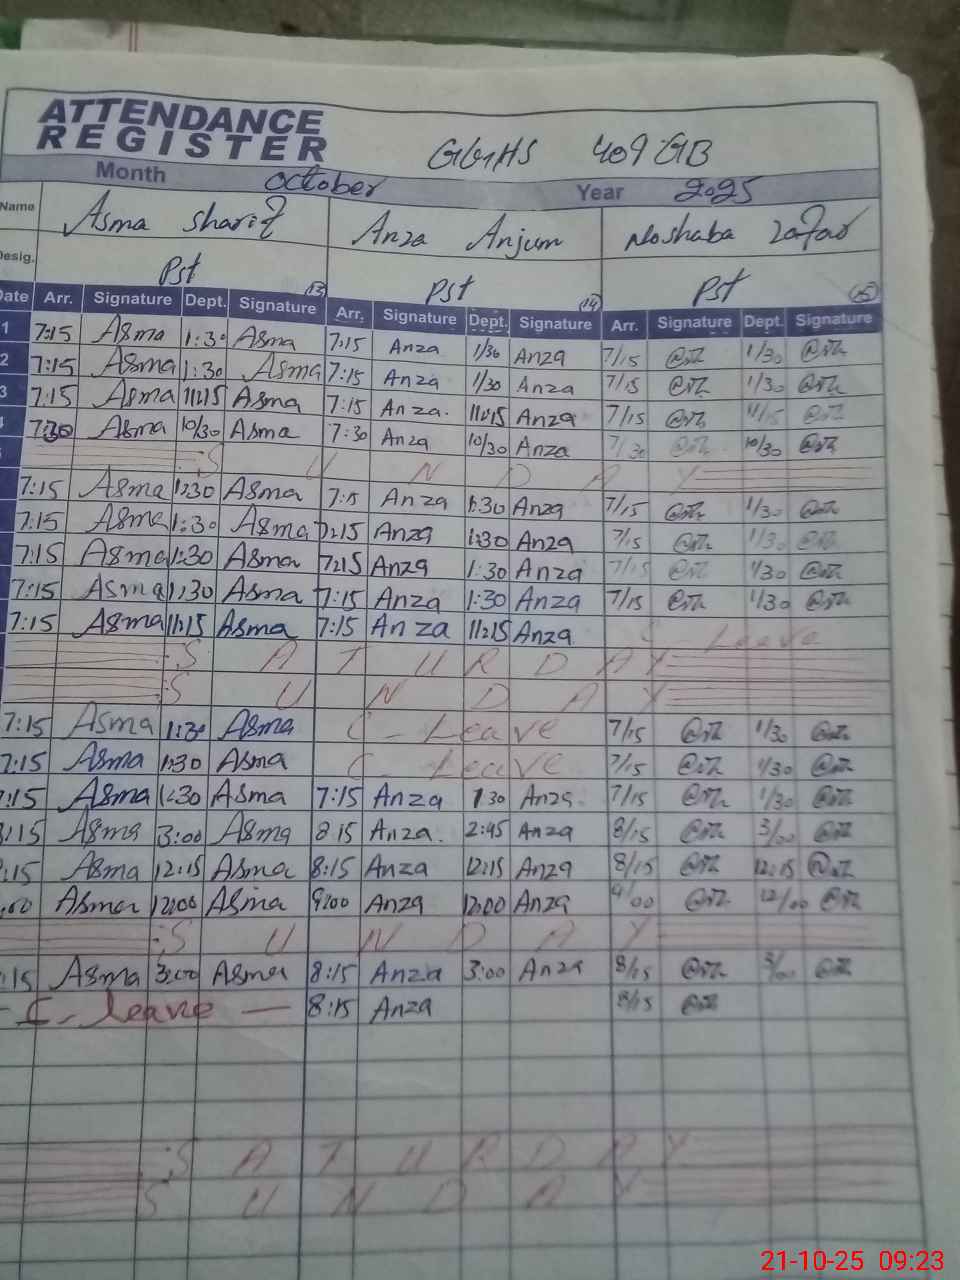 ATTENDANCE
REGISTER
GGHS 409 GB
Month October Year 2025
Name Asma Sharif Anza Anjum Noshaba Zafar
Desig. Pst Pst Pst
Date Arr. Signature Dept. Signature 13 Arr. Signature Dept. Signature 14 Arr. Signature Dept. Signature 15
1 7:15 Asma 1:30 Asma 7:15 Anza 1/30 Anza 7/15 1/30
2 7:15 Asma 1:30 Asma 7:15 Anza 1/30 Anza 7/15 1/30
3 7:15 Asma 11:15 Asma 7:15 Anza. 11:15 Anza 7/15 11/15
4 7:30 Asma 10/30 Asma 7:30 Anza 10/30 Anza 7/30 10/30
5 S U N D A Y
7:15 Asma 1:30 Asma 7:15 Anza 1:30 Anza 7/15 1/30
7:15 Asma 1:30 Asma 7:15 Anza 1:30 Anza 7/15 1/30
7:15 Asma 1:30 Asma 7:15 Anza 1:30 Anza 7/15 1/30
7:15 Asma 1:30 Asma 7:15 Anza 1:30 Anza 7/15 1/30
7:15 Asma 11:15 Asma 7:15 Anza 11:15 Anza C - Leave
S A T U R D A Y
S U N D A Y
7:15 Asma 1:30 Asma C - Leave 7/15 1/30
7:15 Asma 1:30 Asma C - Leave 7/15 1/30
7:15 Asma 1:30 Asma 7:15 Anza 1:30 Anza 7/15 1/30
8:15 Asma 3:00 Asma 8:15 Anza. 2:45 Anza 8/15 3/00
:15 Asma 12:15 Asma 8:15 Anza 12:15 Anza 8/15 12:15
:00 Asma 12:00 Asma 9:00 Anza 12:00 Anza 9/00 12/00
S U N D A Y
:15 Asma 3:00 Asma 8:15 Anza 3:00 Anza 8/15 3/00
- C - leave - 8:15 Anza 8/15
S A T U R D A Y
S U N D A Y
21-10-25 09:23